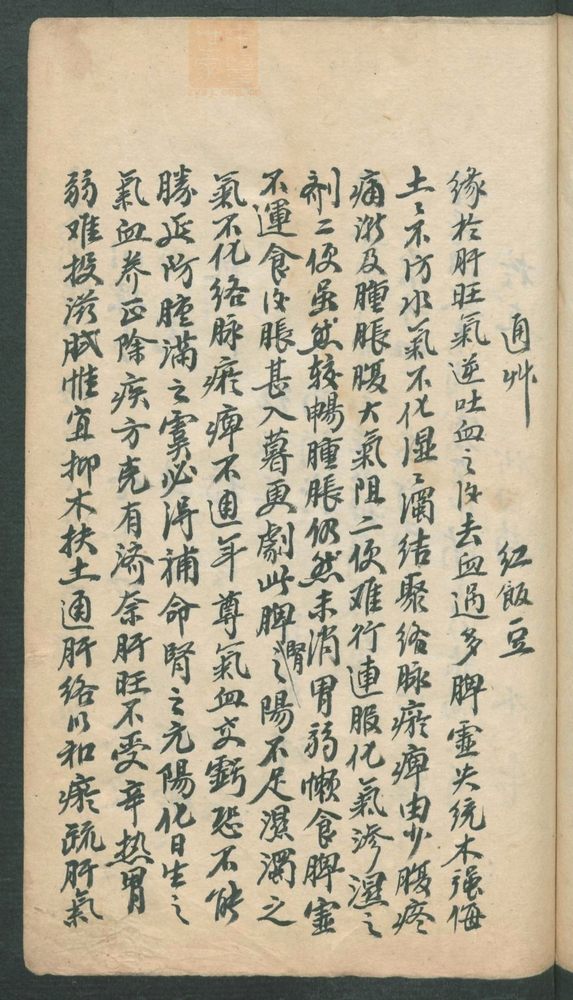 通艸　紅飯豆
緣於肝旺氣逆吐血之後去血過多脾虛失統木強侮
土土不防水氣不化濕濕濁結聚絡脉瘀痺由少腹疼
痛漸及腫脹腹大氣阻二便难行連服化氣滲濕之
劑二便虽然較暢腫脹仍然未消胃弱懶食脾虛
不運食後脹甚入暮更劇此脾腎之陽不足濕濁之
氣不化絡脉瘀痺不通年尊氣血交虧恐不能
勝延防腫滿之虞必得補命腎之元陽化日生之
氣血养正除疾方克有济奈肝旺不受辛热胃
弱难投滋膩惟宜抑木扶土通肝絡以和瘀疏肝氣